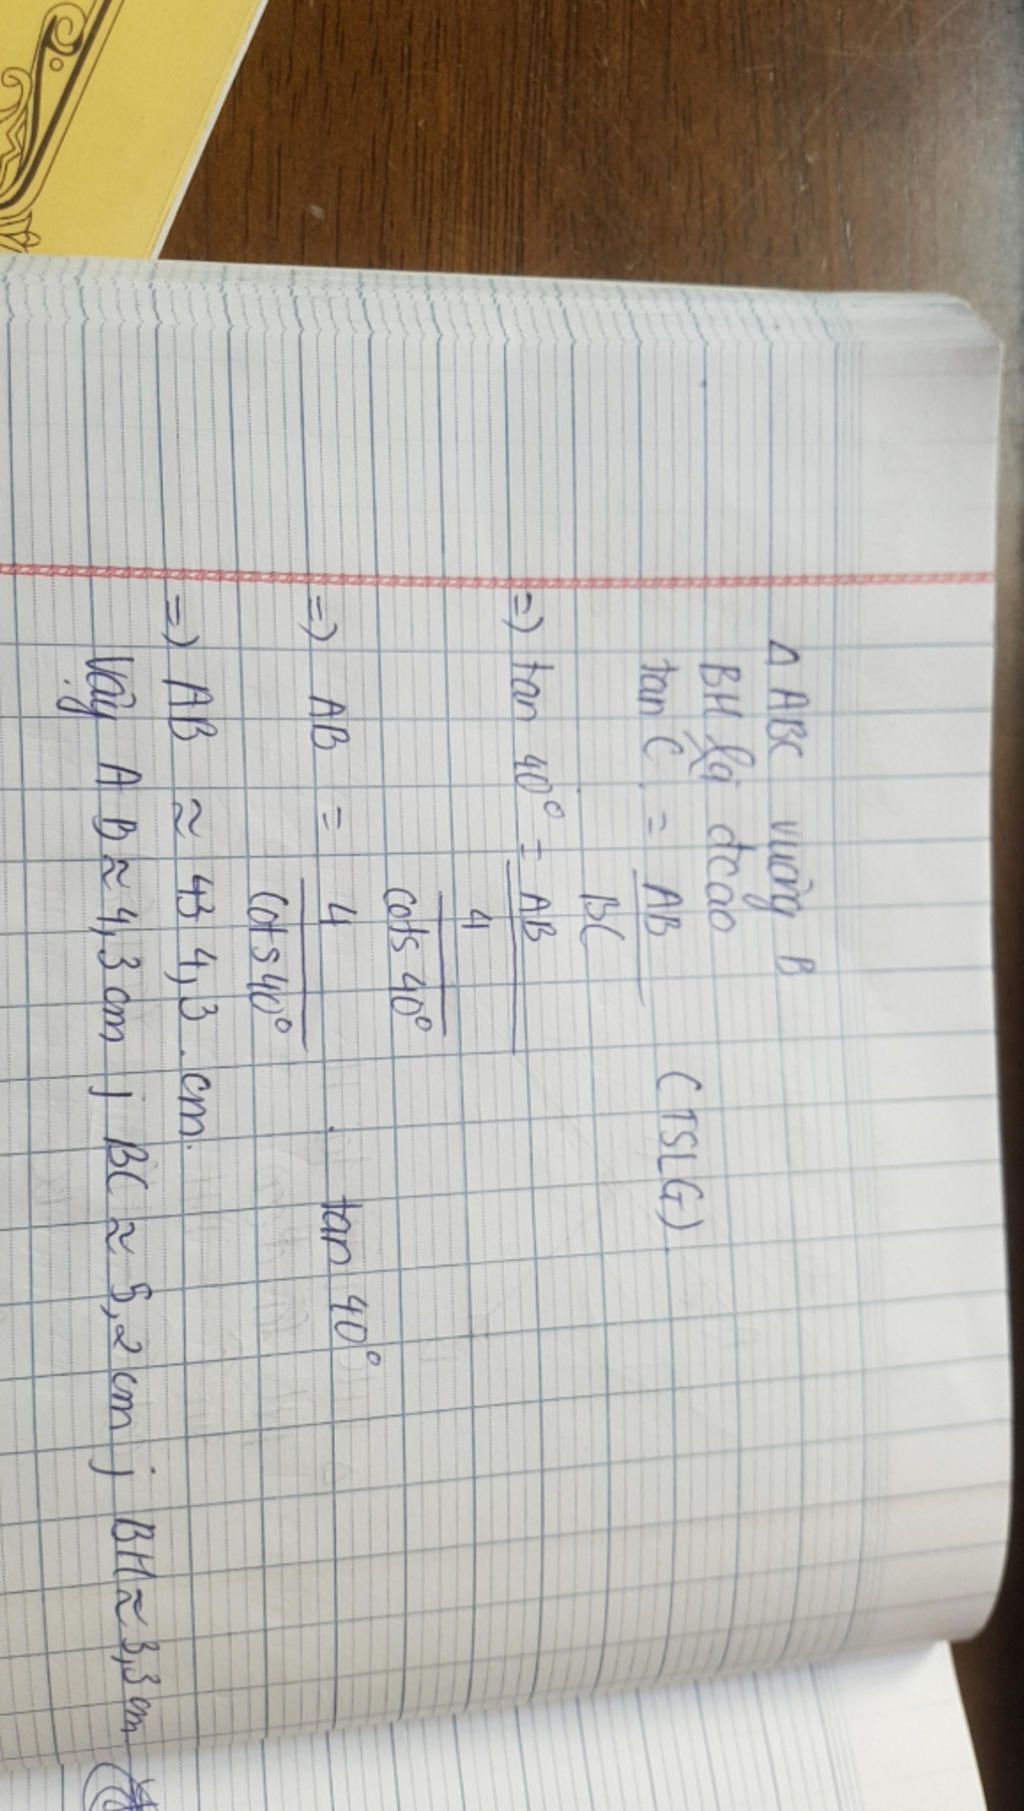 Δ ABC vuông B
BH là đcao
tan C = AB / BC (TSLG)
=) tan 40° = AB / 4 / cos 40°
=) AB = 4 / cos 40° . tan 40°
=) AB ≈ 4,3 cm.
Vậy AB ≈ 4,3 cm ; BC ≈ 5,2 cm ; BH ≈ 3,3 cm